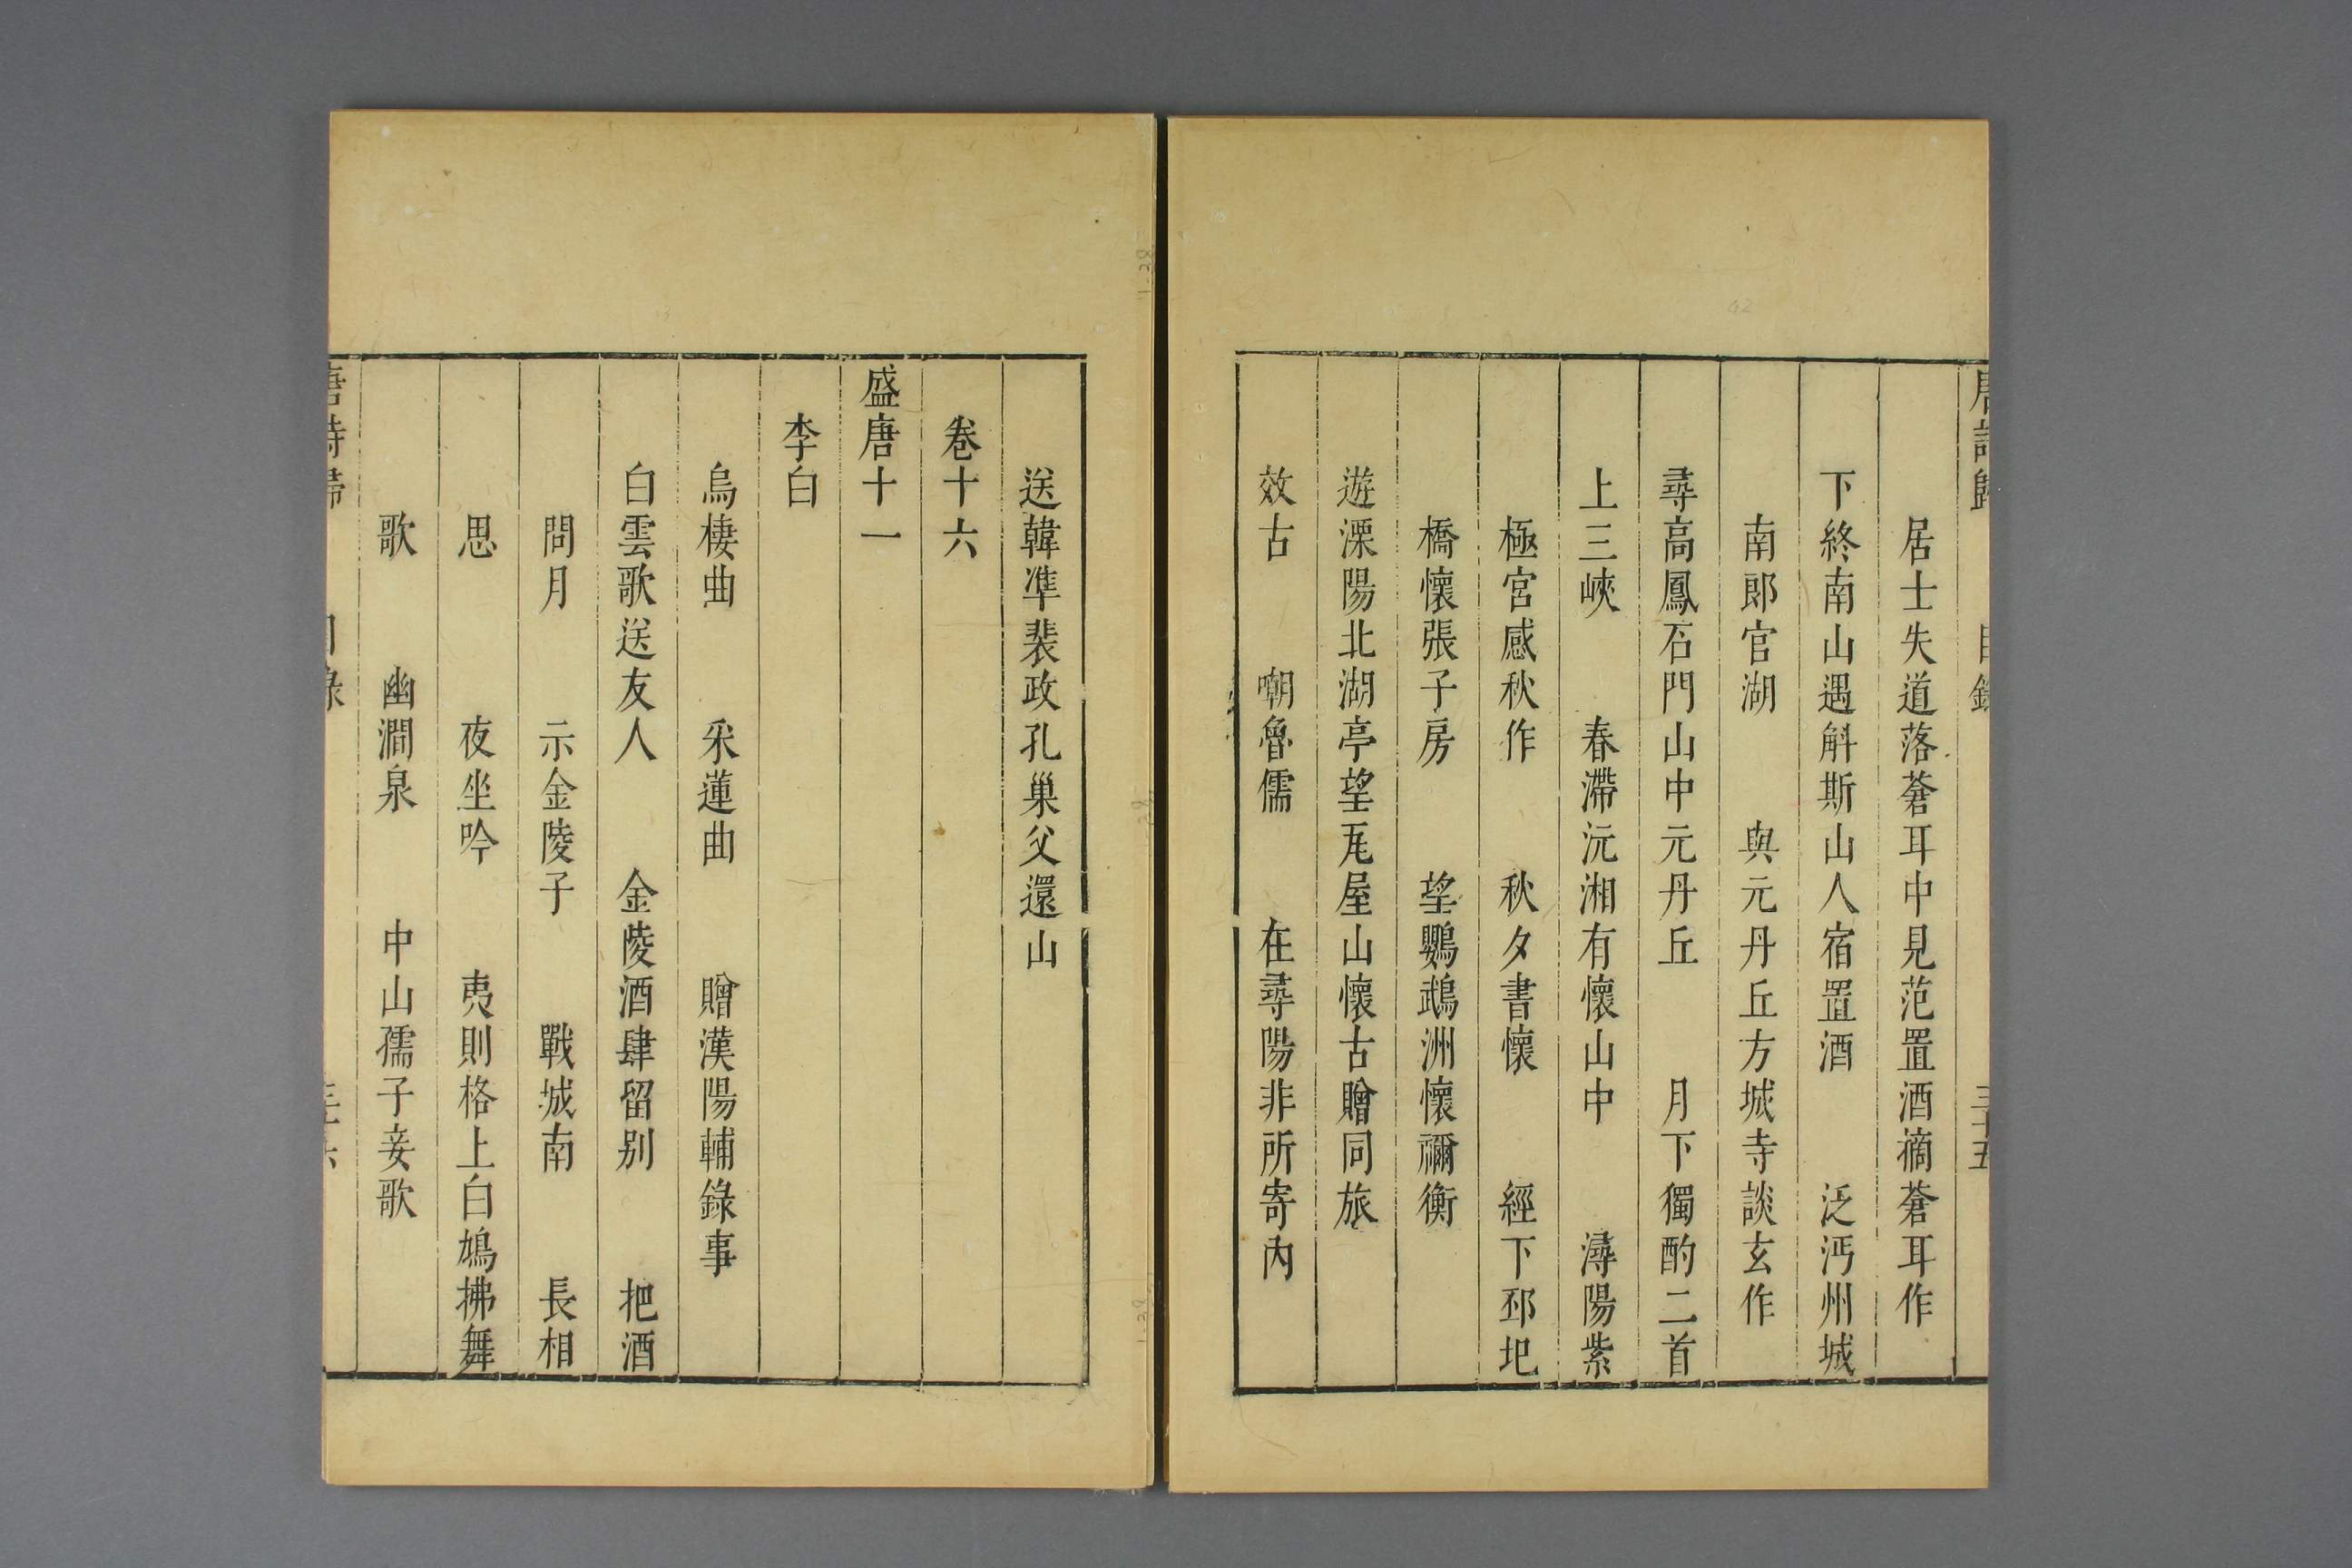 唐詩歸 目錄 三十五
居士失道落蒼耳中見范置酒摘蒼耳作
下終南山遇斛斯山人宿置酒 泛沔州城
南郎官湖 與元丹丘方城寺談玄作
尋高鳳石門山中元丹丘 月下獨酌二首
上三峽 春滯沅湘有懷山中 潯陽紫
極宮感秋作 秋夕書懷 經下邳圯
橋懷張子房 望鸚鵡洲懷禰衡
遊溧陽北湖亭望瓦屋山懷古贈同旅
效古 嘲魯儒 在尋陽非所寄內
送韓準裴政孔巢父還山
卷十六
盛唐十一
李白
烏棲曲 采蓮曲 贈漢陽輔錄事
白雲歌送友人 金陵酒肆留別 把酒
問月 示金陵子 戰城南 長相
思 夜坐吟 夷則格上白鳩拂舞
歌 幽澗泉 中山孺子妾歌
唐詩歸 目錄